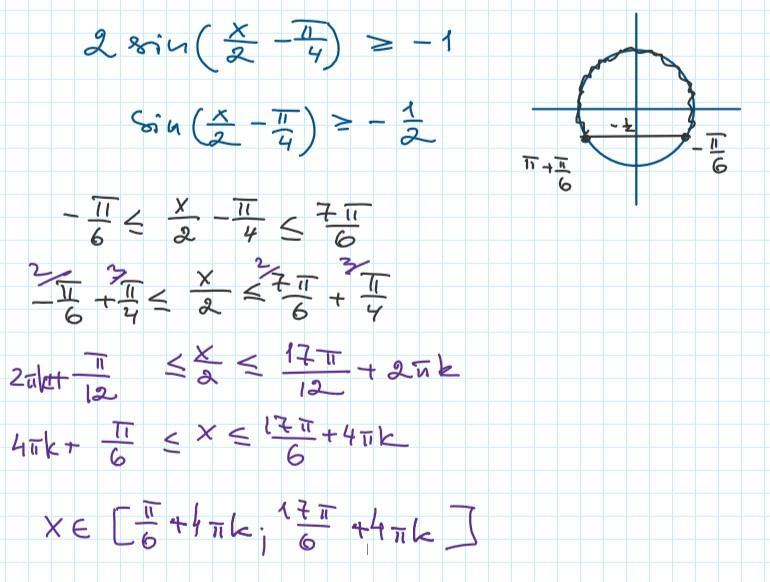 2 sin(x/2 - π/4) ≥ -1
sin(x/2 - π/4) ≥ -1/2
-1/2
π + π/6
-π/6
-π/6 ≤ x/2 - π/4 ≤ 7π/6
2/ 3/ 2/ 3/
-π/6 + π/4 ≤ x/2 ≤ 7π/6 + π/4
2πk + π/12 ≤ x/2 ≤ 17π/12 + 2πk
4πk + π/6 ≤ x ≤ 17π/6 + 4πk
x ∈ [π/6 + 4πk ; 17π/6 + 4πk]